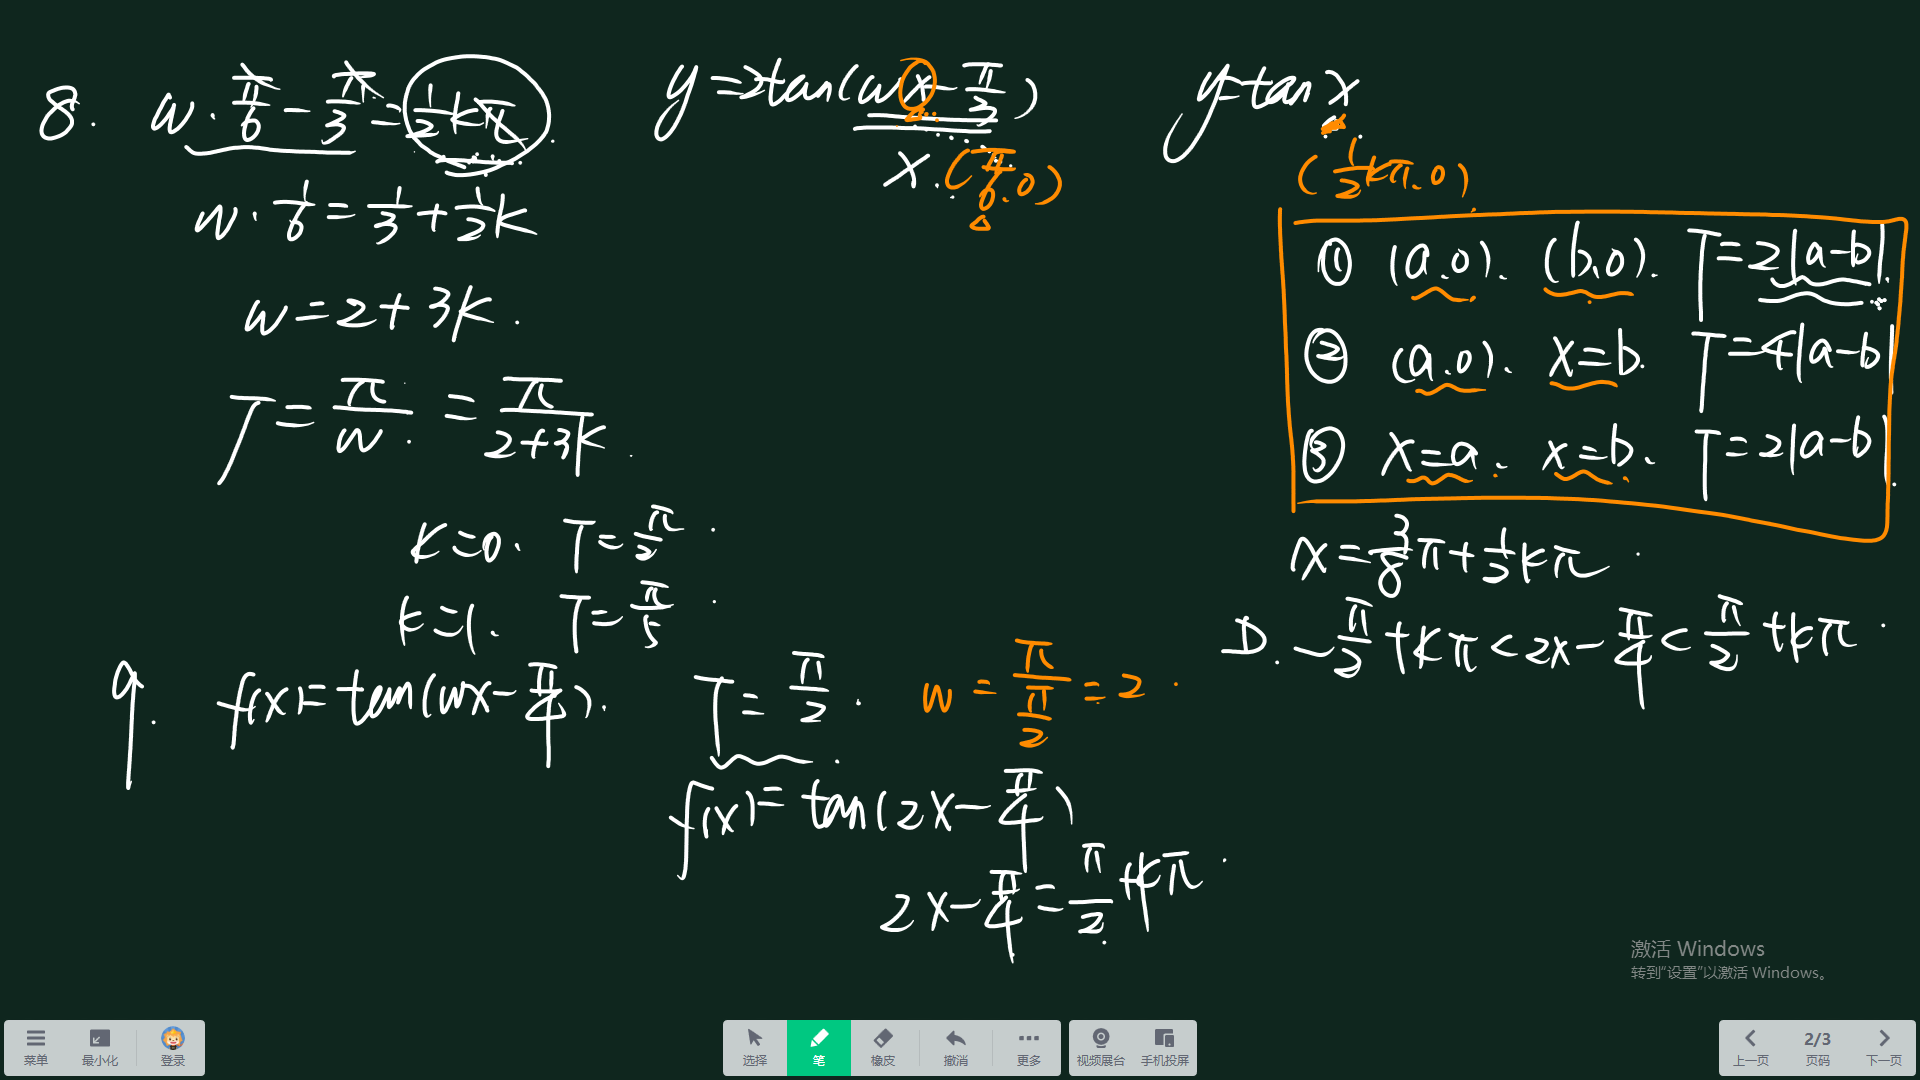 8. w·π/6 − π/3 = 1/2kπ
w·1/6 = 1/3 + 1/2k
w = 2 + 3k.
T = π/w = π/(2+3k).
k=0. T=π/2.
k=1. T=π/5.
y=2tan(wx−π/3)
x. (π/6.0)
y=tan x
(1/2kπ.0)
① (a.0). (b.0). T=2|a−b|.
② (a.0). x=b. T=4|a−b|
③ x=a. x=b. T=2|a−b|.
x=3/8π+1/2kπ.
D. −π/2+kπ<2x−π/4<π/2+kπ.
9. f(x)=tan(wx−π/4). T=π/2. w=π/(π/2)=2.
f(x)=tan(2x−π/4)
2x−π/4=π/2+kπ.
激活 Windows
转到“设置”以激活 Windows。
菜单 最小化 登录 选择 笔 橡皮 撤消 更多 视频展台 手机投屏 上一页 2/3 页码 下一页